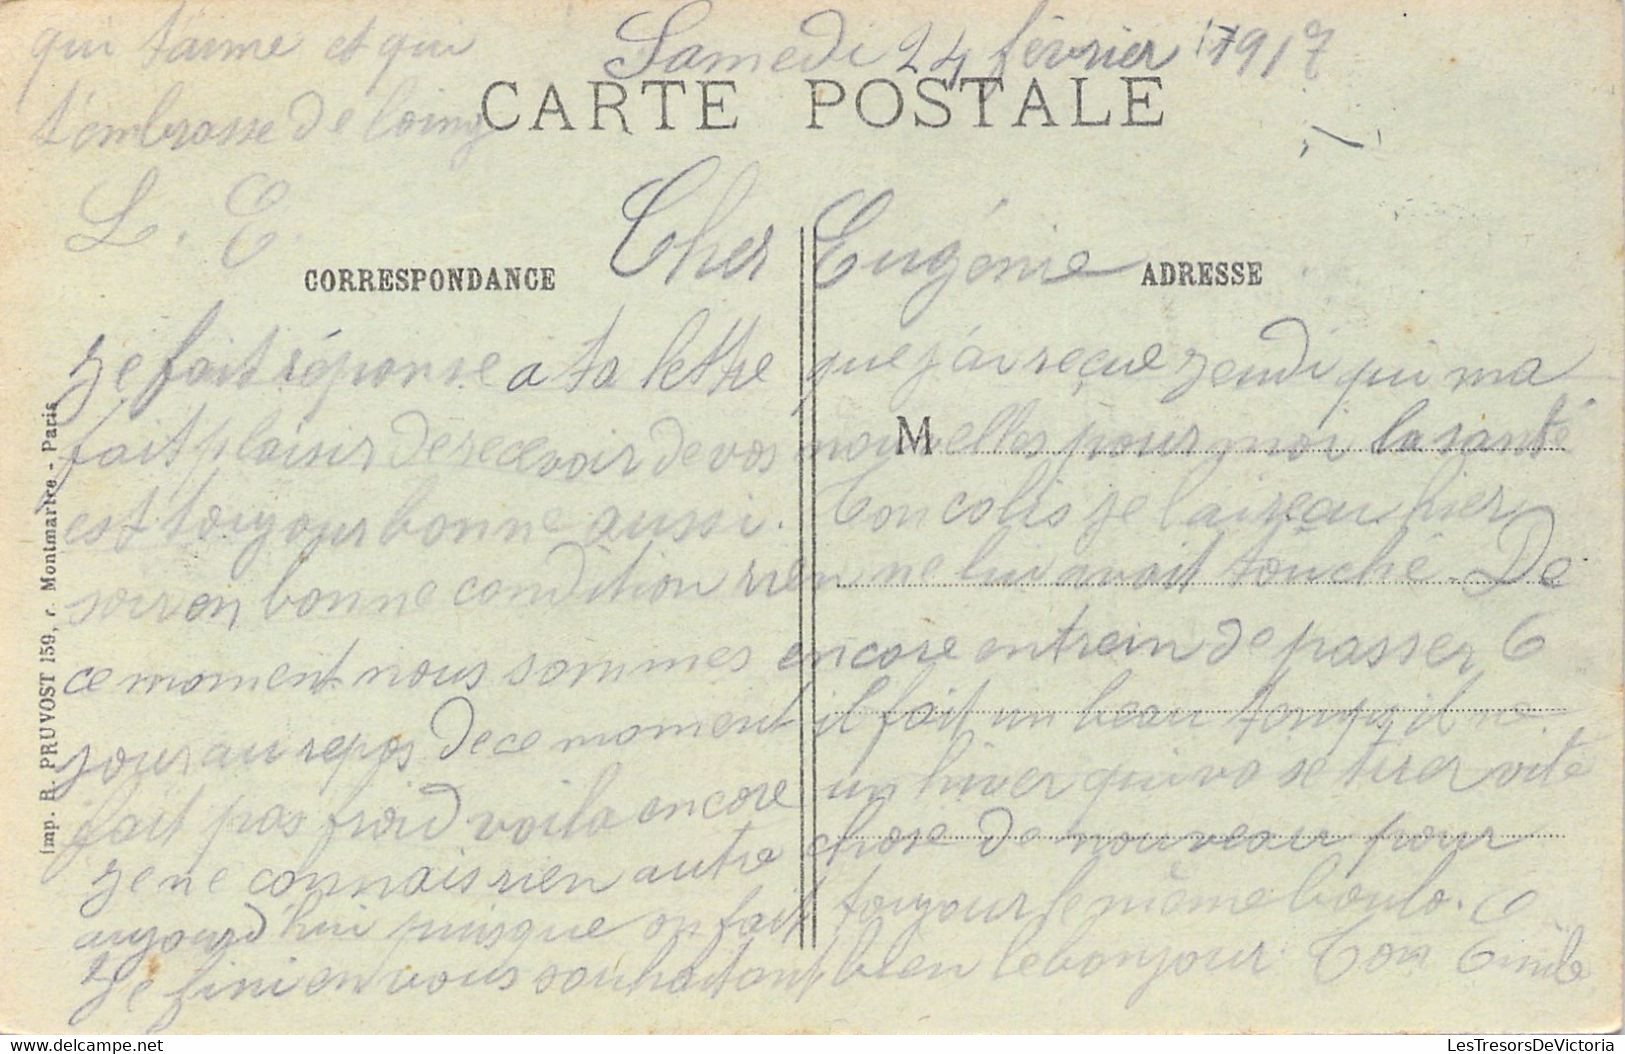 Samedi 24 février 1917
CARTE POSTALE
Cher Eugénie
CORRESPONDANCE
ADRESSE
Je fait réponse a ta lettre que j'ai reçue jeudi qui ma
fait plaisir de recevoir de vos nouvelles pour moi la santé
M
est toujour bonne aussi. Ton colis je l'ai reçu hier
soir en bonne condition rien ne lui avait touché. De
ce moment nous sommes encore entrein de passer 6
jour au repos de ce moment il fait un beau temps il ne
fait pas froid voila encore un hiver qui va se tirer vite
Je ne connais rien autre chose de nouveau pour
aujourd'hui puisque on fait toujour le même boulo.
Je fini en vous souhaitant bien le bonjour Ton Emile
qui t'aime et qui
t'embrasse de loing
L. E.
Imp. R. PRUVOST 159, r. Montmartre - Paris
LesTresorsDeVictoria
delcampe.net